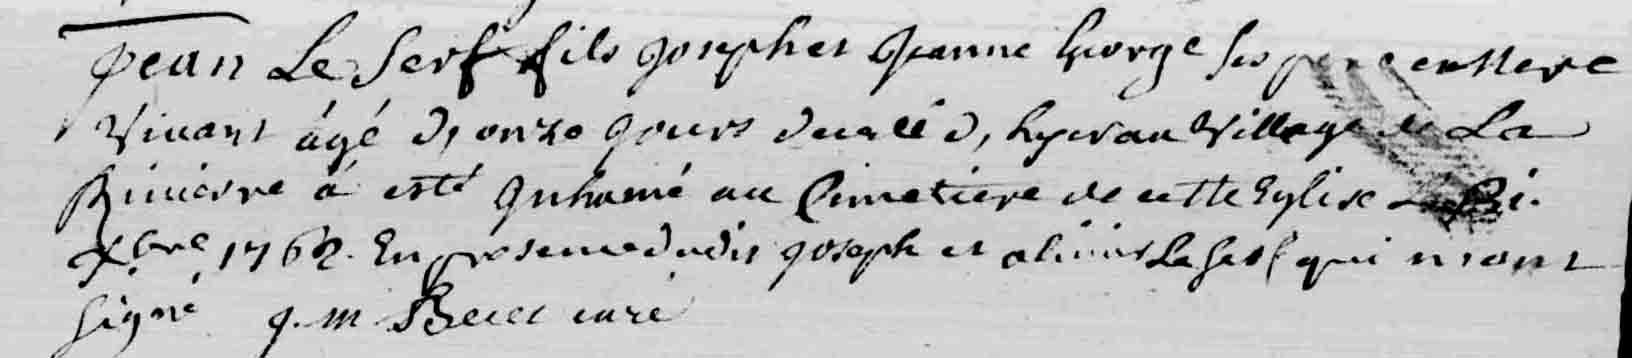 Jean Le Serf fils Joseph et Jeanne George ses pere et mere
vivant âgé d, onze Jours decedé d, hyer au village de La
Riviere à esté Inhumé au Cimetiere de cette Eglise
xbre 1762. En presence dudit Joseph et olivier Le Serf qui n'ont
signé J. m curé